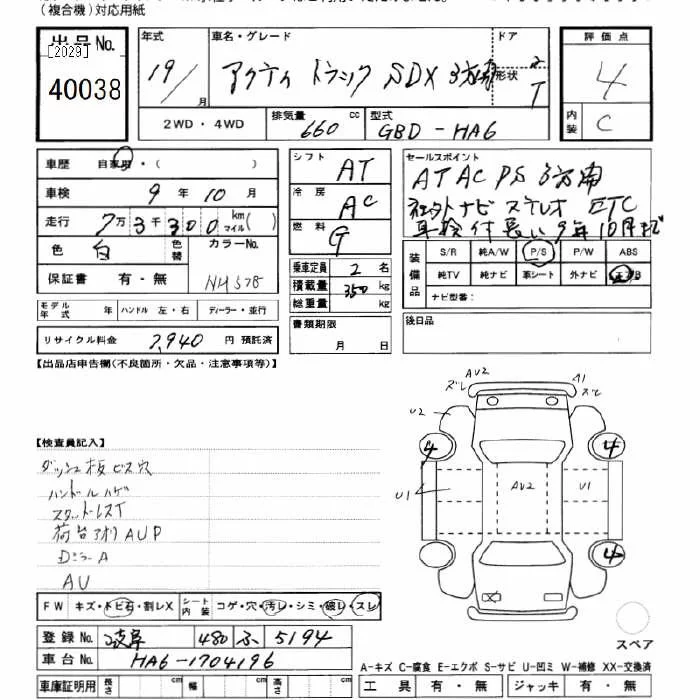 (複合機)対応用紙
出品No. [2029] 40038
年式 19/ 月
車名・グレード アクティ トラック SDX 3方開
ドア 2 形状 T
評価点 4
内装 C
2WD・4WD
排気量 660 cc
型式 GBD-HA6
車歴 自家用・( )
車検 9年10月
走行 7万3千300 km マイル( )
色 白 色替 カラーNo. NH578
保証書 有・無
シフト AT
冷房 AC
燃料 G
乗車定員 2名
積載量 350 kg
総重量 kg
書類期限 月 日
セールスポイント
AT AC PS 3方開
社外ナビ ステレオ ETC
車検付長い 9年10月まで
装備品
S/R 純A/W P/S P/W ABS
純TV 純ナビ 革シート 外ナビ エアB
ナビ型番:
後日品
モデル年式 年 ハンドル 左・右 ディーラー・並行
リサイクル料金 7,940 円 預託済
【出品店申告欄(不良箇所・欠品・注意事項等)】
AV2 ズレ A1 ズレ
U2
4 4
U1 AU2 U1
4
X
【検査員記入】
ダッシュ板ビス穴
ハンドルハゲ
スタットレスT
荷台アオリAUP
DミラーA
AU
FW キズ・トビ石・割レX シート内装 コゲ・穴・汚レ・シミ・破レ・スレ
登録No. 岐阜 480 ふ 5194
車台No. HA6-1704196
スペア
A-キズ C-腐食 E-エクボ S-サビ U-凹ミ W-補修 XX-交換済
車庫証明用 長さ cm 幅 cm 高さ cm
工具 有・無 ジャッキ 有・無